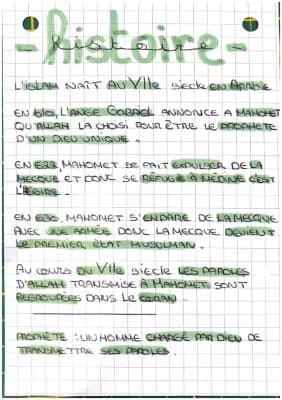 - histoire -
histoire
L'ISLAM NAÎT AU VIIe siècle EN Arabie
EN 610, L'ANGE GABRIEL ANNONCE A MAHOMET
QU'ALLAH LA CHOISI POUR ÊTRE LE PROPHÈTE
D'UN DIEU UNIQUE.
EN 622, MAHOMET SE FAIT EXPULSER DE LA
MECQUE ET DONC SE RÉFUGIE À MÉDINE C'EST
L'HÉGIRE.
EN 630, MAHOMET S'EMPARE DE LA MECQUE
AVEC UNE ARMÉE DONC LA MECQUE DEVIENT
LE PREMIER ÉTAT MUSULMAN.
AU cours DU VIIe siecle LES PAROLES
D'ALLAH TRANSMISE À MAHOMET SONT
REGROUPÉES DANS LE CORAN.
PROPHÈTE : UN HOMME CHARGÉ PAR DIEU DE
TRANSMETTRE SES PAROLES.